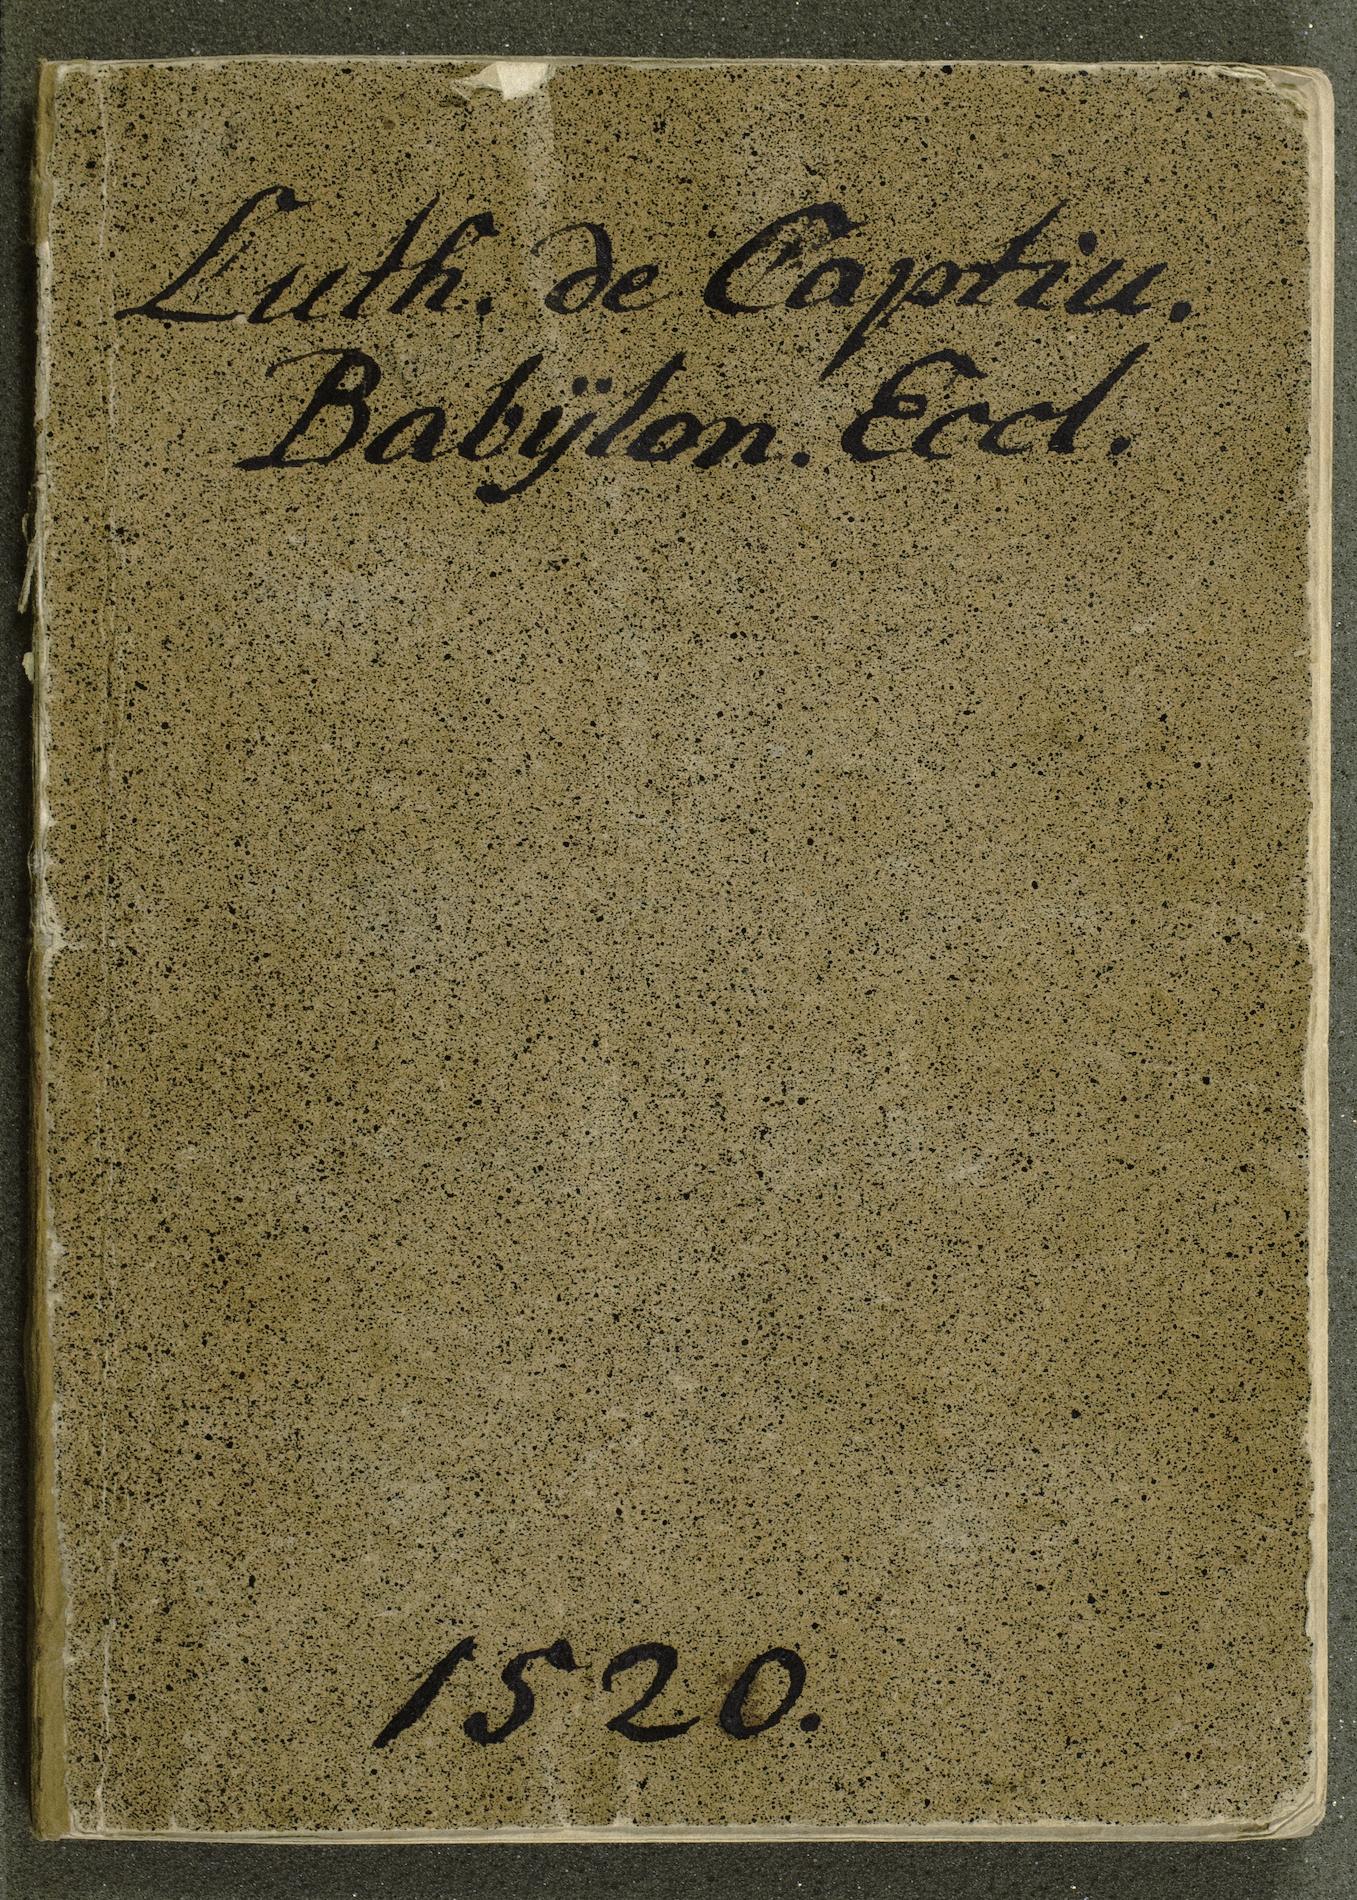 Luth. de Captiu.
Babÿlon. Eccl.
1520.